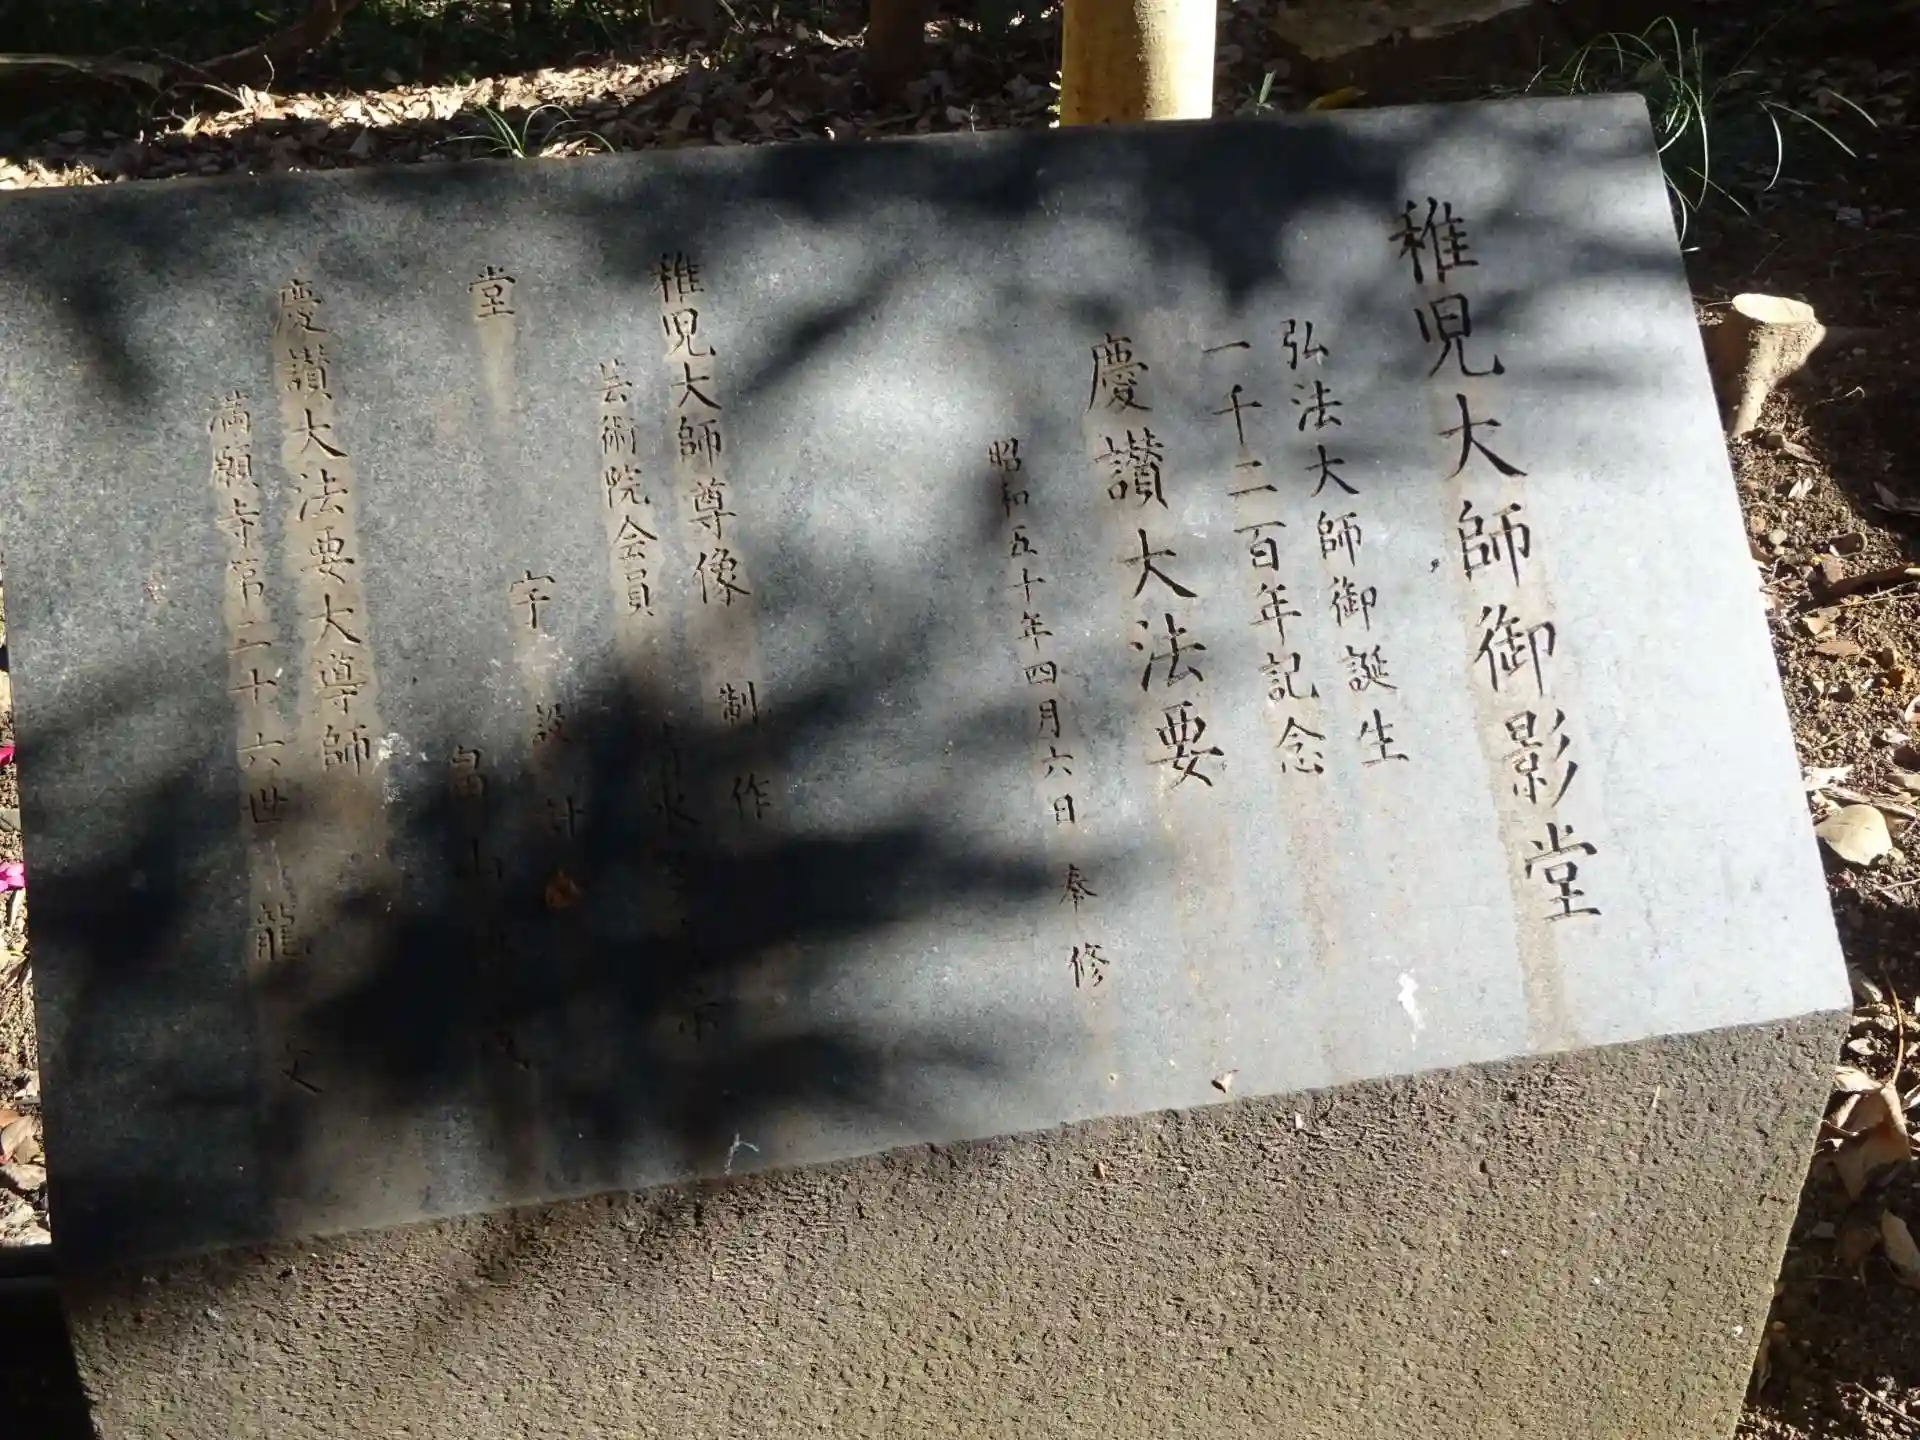 稚児大師御影堂
弘法大師御誕生
一千二百年記念
慶讃大法要
昭和五十年四月六日 奉修
稚児大師尊像 制作
芸術院会員
堂 宇 設計
畠山
慶讃大法要大導師
満願寺第二十六世 龍文